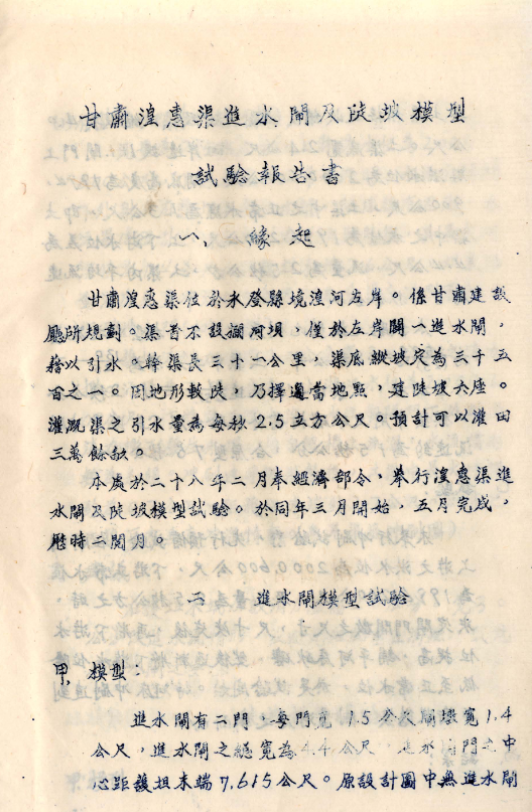 甘肅湟惠渠進水閘及陡坡模型
試驗報告書
一、緣起
甘肅湟惠渠位於永登縣境湟河左岸。係甘肅建設
廳所規劃。渠首不設攔河坝,僅於左岸開一進水閘,
藉以引水。幹渠長三十一公里,渠底縱坡定為三十五
百之一。因地形較陡,乃擇適當地點,建陡坡六座。
灌溉渠之引水量為每秒2.5立方公尺。預計可以灌田
三萬餘畝。
本處於二十八年二月奉經濟部令,舉行湟惠渠進
水閘及陡坡模型試驗。於同年三月開始,五月完成,
歷時二閱月。
二 進水閘模型試驗
甲、模型:
進水閘有二門,每門寬1.5公尺閘墩寬1.4
公尺,進水閘之總寬為4.4公尺,進水閘門之中
心距護坦末端7.615公尺。原設計圖中無進水閘